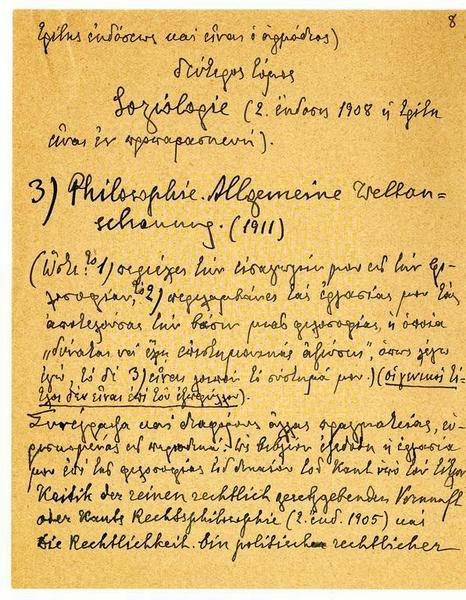 8
τρίτης ἐκδόσεως καὶ εἶναι ὁ ὀγδόος)
δεύτερος τόμος
Soziologie (2. ἔκδοσις 1908 ἡ τρίτη
εἶναι ἐν προπαρασκευῇ).
3) Philosophie. Allgemeine Weltan=
schauung. (1911)
(Ὥστε τὸ 1) περιέχει τὴν εἰσαγωγήν μου εἰς τὴν φι-
λοσοφίαν, τὸ 2) περιλαμβάνει τὰς ἐργασίας μου τὰς
ἀποτελούσας τὴν βάσιν μιᾶς φιλοσοφίας, ἡ ὁποία
„δύναται νὰ ἔχῃ ἐπιστημονικὰς ἀξιώσεις", ὅπως λέγω
ἐγώ, τὸ δὲ 3) εἶναι λοιπὸν τὸ σύστημά μου.) (οἱ γενικοὶ τί-
τλοι δὲν εἶναι ἐπὶ τοῦ ἐξωφύλλου).
Συνέγραψα καὶ διαφόρους ἄλλας πραγματείας, εὑ-
ρισκομένας εἰς περιοδικά. Ὡς βιβλίον ἐξεδόθη ἡ ἐργασία
μου ἐπὶ τῆς φιλοσοφίας τοῦ δικαίου τοῦ Kant ὑπὸ τὸν τίτλον
Kritik der reinen rechtlich gesetzgebenden Vernunft
oder Kants Rechtsphilosophie (2. ἔκδ. 1905) καὶ
Die Rechtlichkeit. Ein politischer rechtlicher